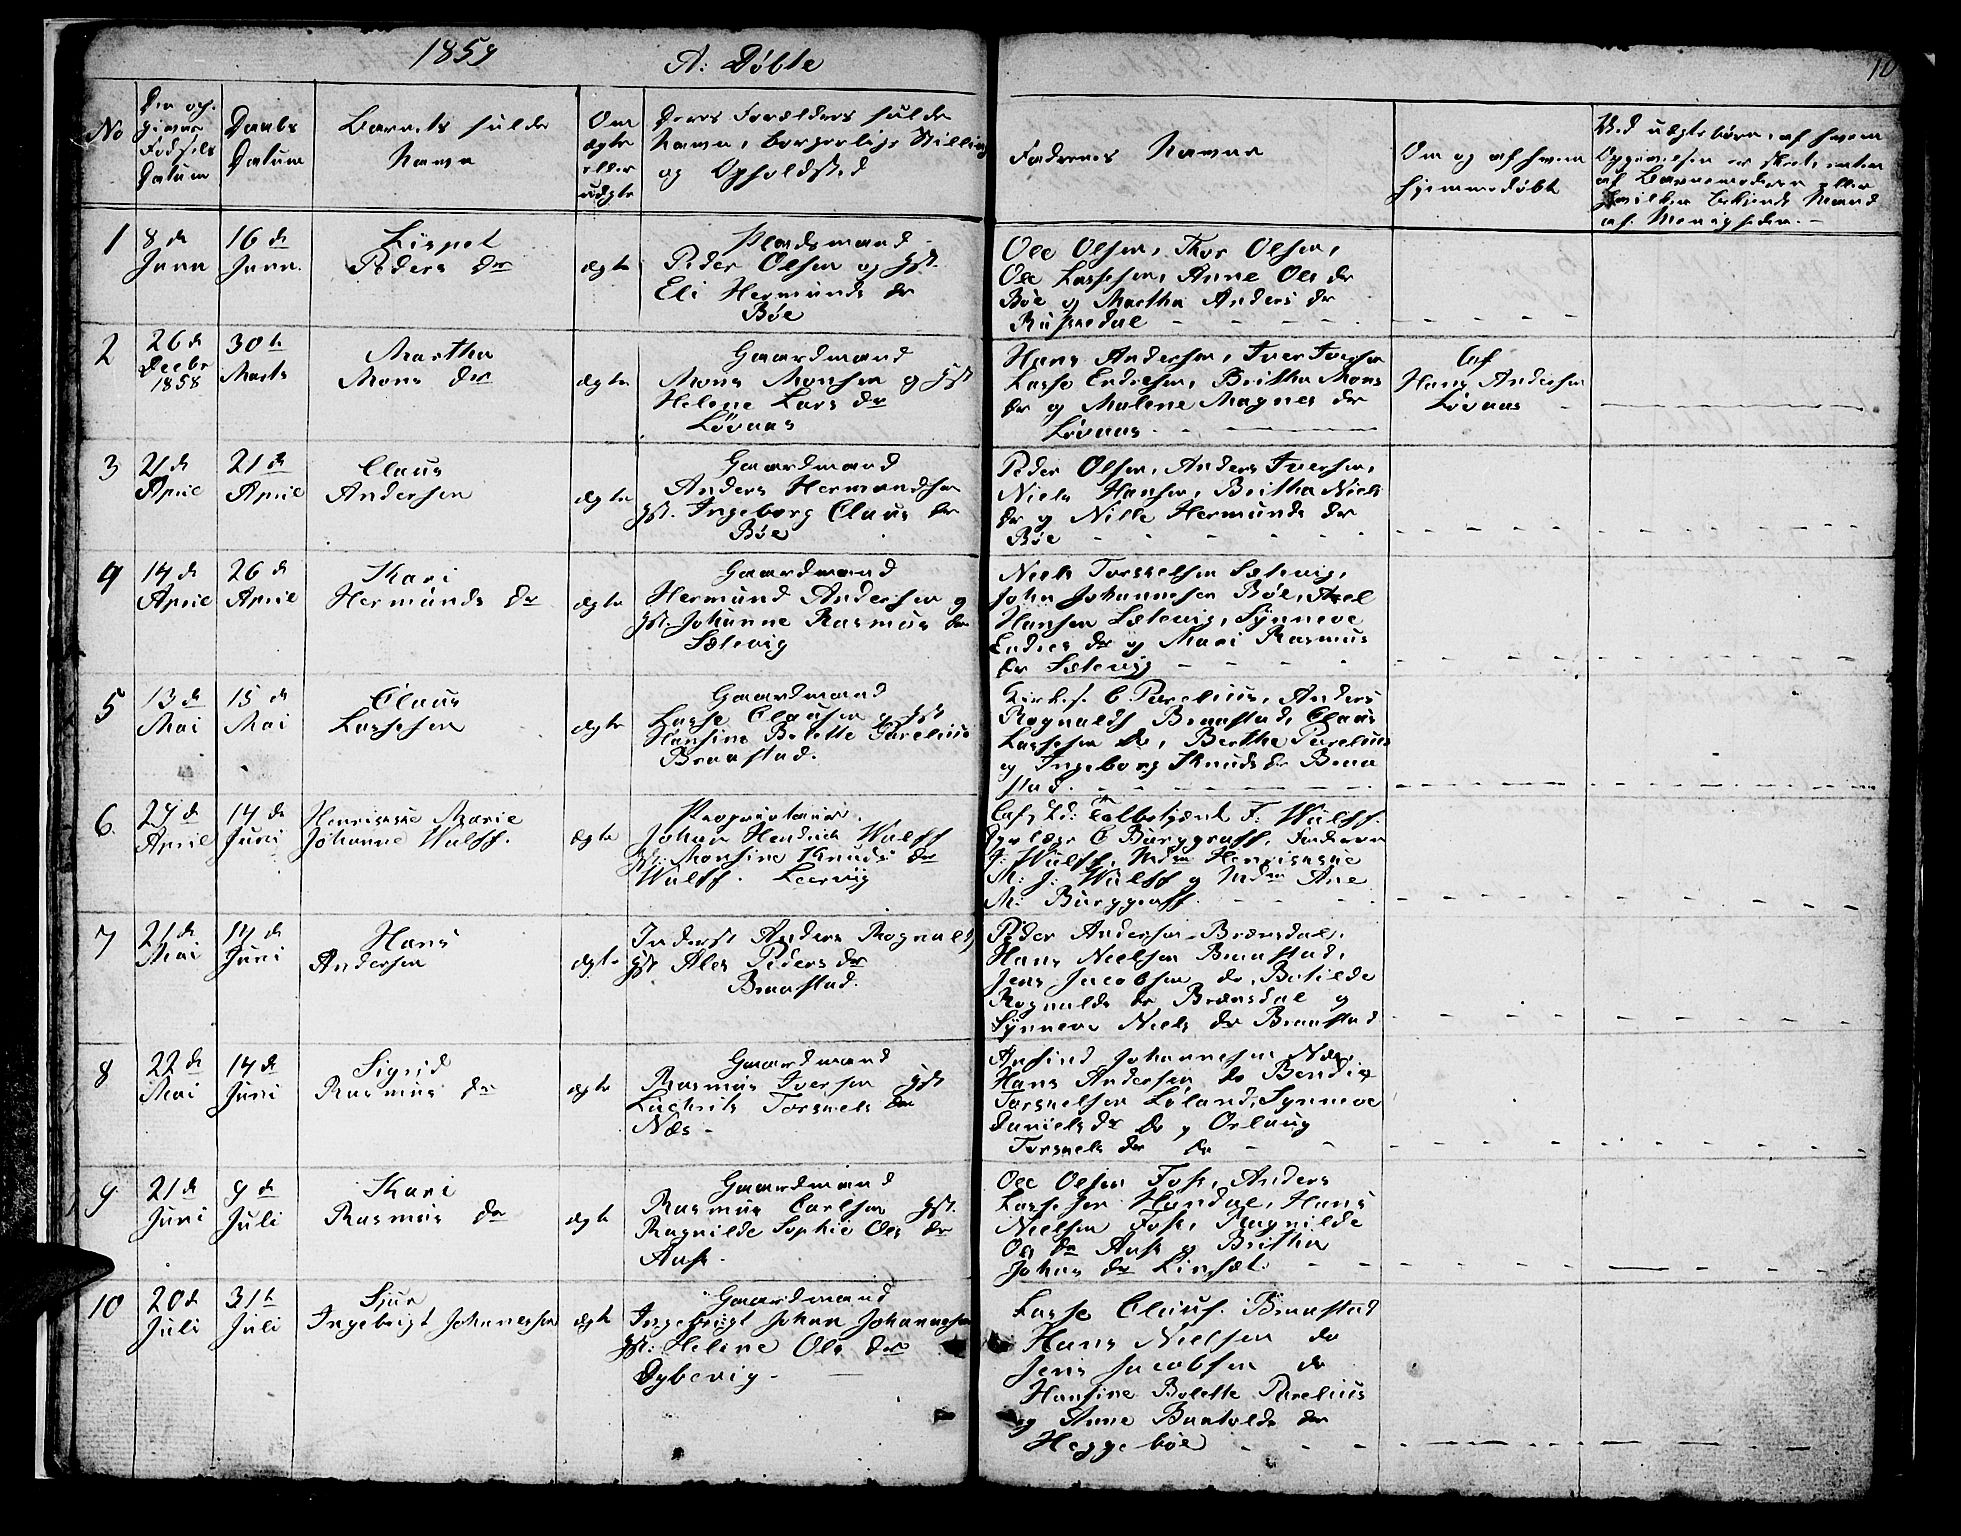 1859 A: Døbte
10
No
Den op-
givne
Fødsels
Datum
Daabs
Datum
Barnets fulde
Navn
Om
ægte
eller
uægte
Deres Forældres fulde
Navn, borgerlige Stilling
og Opholdsted
Faderenes Navne
Om og af hvem
hjemmedøbt
Ved uægte børn, af hvem
Opgivelsen er skeet, enten
af Barnemoderen eller
hvilken bekjendt Mand
af Menigheden. -
1
8 de
Janu
16 de
Janu.
Lispet
Peders dr
ægte
Pladsmand
Peder Olsen og Hst.
Eli Hermunds dr
Bøe
Ole Olsen, Thor Olsen,
Ole Lassesen, Anne Ols dr
Bøe og Martha Anders dr
Risnedal
2
26 de
Decbr
1858
30te
Marts
Martha
Mons dr
ægte
Gaardmand
Mons Monsen og Hst
Helene Lars dr
Løvaas
Hans Andersen, Iver Iversen
Lasse Endresen, Britha Mons
dr og Malene Magnes dr
Løvaas
Af
Hans Andersen
Løvaas
3
21 de
April
21 de
April
Claus
Andersen
ægte
Gaardmand
Anders Hermundsen
Hst. Ingeborg Claus dr
Bøe
Peder Olsen, Anders Iversen,
Niels Hansen, Britha Niels
dr og Nille Hermunds dr
Bøe
4
14 de
April
26 de
April
Kari
Hermunds dr
ægte
Gaardmand
Hermund Andersen og
Hst. Johanne Rasmus dr
Sætevig
Niels Torkelsen Sætevig,
John Johannesen Bøe,
Hansen Sætevig, Synneve
Endres dr og Mari Rasmus
dr Sætevig
5
13 de
Mai
15 de
Mai
Claus
Lassesen
ægte
Gaardmand
Lasse Clausen og Hst
Hansine Bolette Parelius
Braastad.
Kirks. C. Parelius, Anders
Rognalds Braastad, Claus
Lassesen do, Berthe Parelius
og Ingeborg Knuds dr Braa
stad.
6.
24 de
April
14 de
Juni
Henrikke Marie
Johanne Wulff.
ægte
Proprietair.
Johan Hendrik Wulff
Hst: Monsine Knuds dr
Wulff. Leervig
F. Wulff.
C Burggraff,
J: Wulff, Mdm Henrikke
M: J: Wulff og Mdm Ane
M: Burggraff.
7
21 de
Mai
14 de
Juni
Hans
Andersen
ægte
Inderst Anders Rognalds
Hst Ales Peders dr
Braastad.
Peder Andersen Brænsdal,
Hans Nielsen Braastad,
Jens Jacobsen do, Botilde
Rognalds dr Brænsdal og
Synneve Niels dr Braastad
8
22 de
Mai
14 de
Juni
Sigrid
Rasmus dr
ægte
Gaardmand
Rasmus Iversen Hst
Lachrits Torkels dr
Næs -
Ansind Johannesen Næs,
Hans Andersen do Bendix
Torkelsen Løland, Synneve
Daniels dr do og Orlaug
Torkels dr do
9
21 de
Juni
9 de
Juli
Kari
Rasmus dr
ægte
Gaardmand
Rasmus Carlsen Hst.
Ragnilde Sophie Ols dr
Aase.
Ole Olsen Foss, Anders
Lassesen Handal, Hans
Nielsen Foss, Ragnilde
Ols dr Aase og Britha
Johns dr Linsæt.
10
20 de
Juli
31te
Juli
Sjur
Ingebrigt Johannessen
ægte
Gaardmand
Ingebrigt Johan Johannesen
Hst: Helene Ols dr
Dybevig -
Lasse Claus. Braastad
Hans Nielsen do
Jens Jacobsen do
Hansine Bolette Parelius
og Anne Baatolds dr
Heggebøe